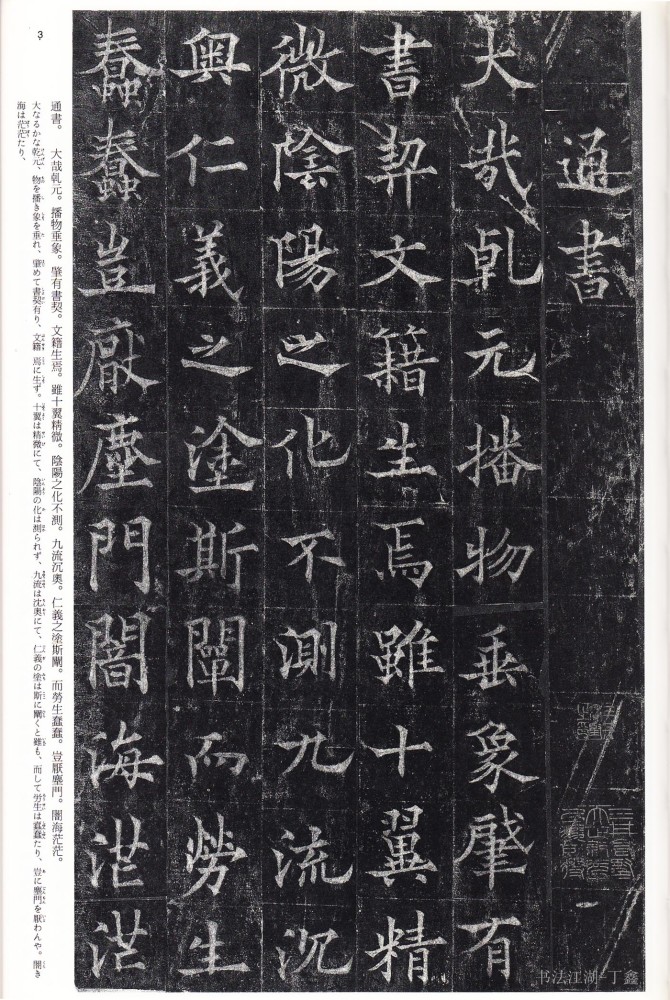 通書
大哉乹元播物垂象肇有
書契文籍生焉雖十翼精
微陰陽之化不測九流沉
奥仁義之塗斯闡而勞生
蠢蠢豈厭塵門闇海茫茫
通書。 大哉乹元。播物垂象。肇有書契。文籍生焉。雖十翼精微。陰陽之化不測。九流沉奥。仁義之塗斯闡。而勞生蠢蠢。豈厭塵門。闇海茫茫。
大なるかな乾元、物を播き象を垂れ、肇めて書契有り、文籍 焉に生ず。十翼は精微にて、陰陽の化は測られず、九流は沈奥にて、仁義の塗は斯に闡くと雖も、而して労生は蠢蠢たり、豈に塵門を厭わんや。闇き
海は茫茫たり、
3
书法江湖-丁鑫